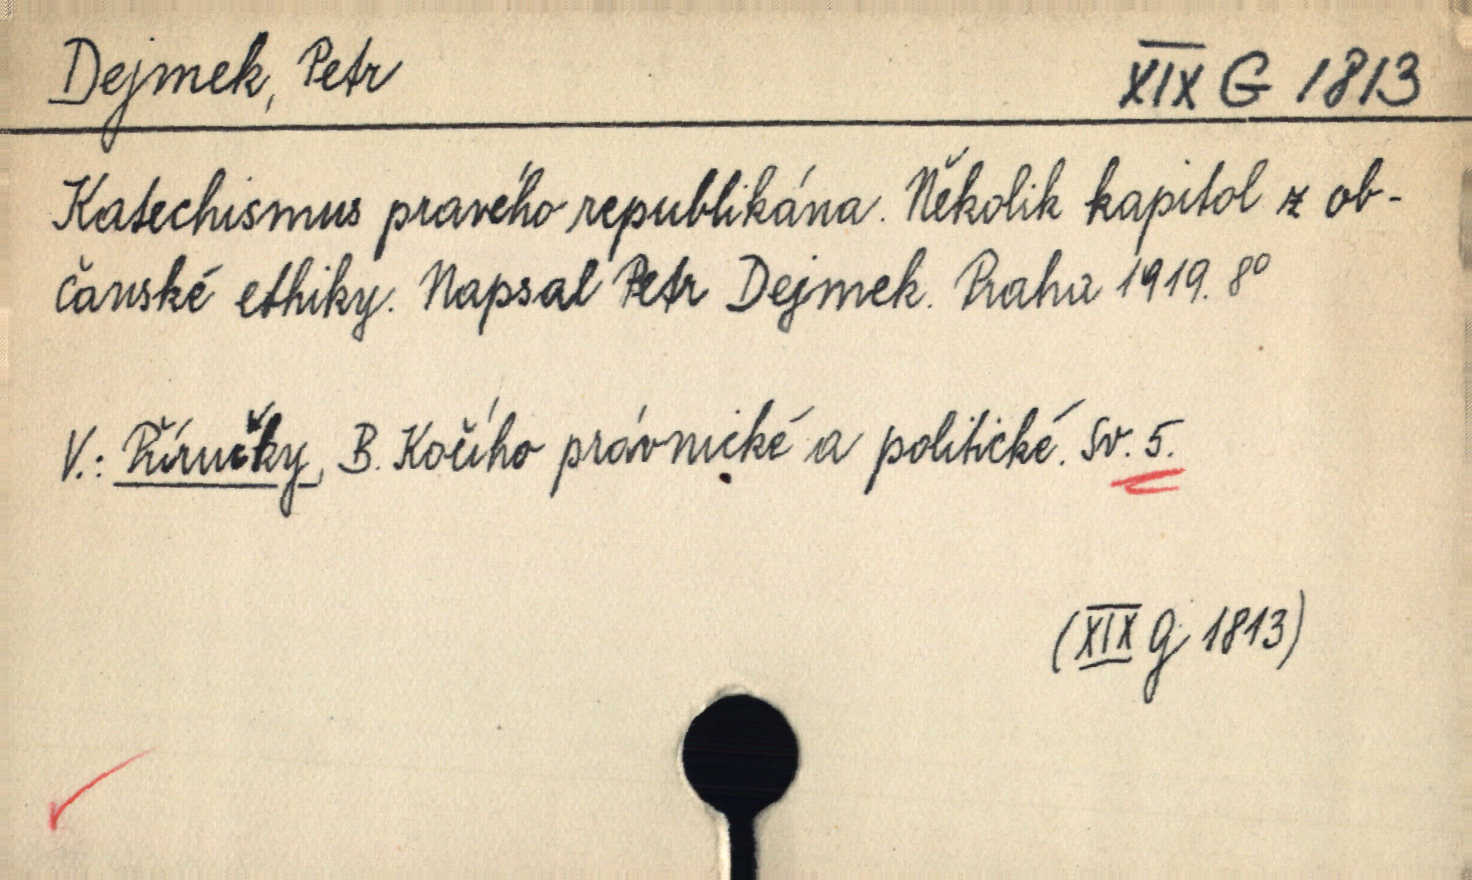 Dejmek, Petr
XIX G 1813
Katechismus pravého republikána. Několik kapitol z ob-
čanské ethiky. Napsal Petr Dejmek. Praha 1919. 8°
V.: Příručky, B. Kočího právnické a politické. Sv. 5.
(XIX G 1813)